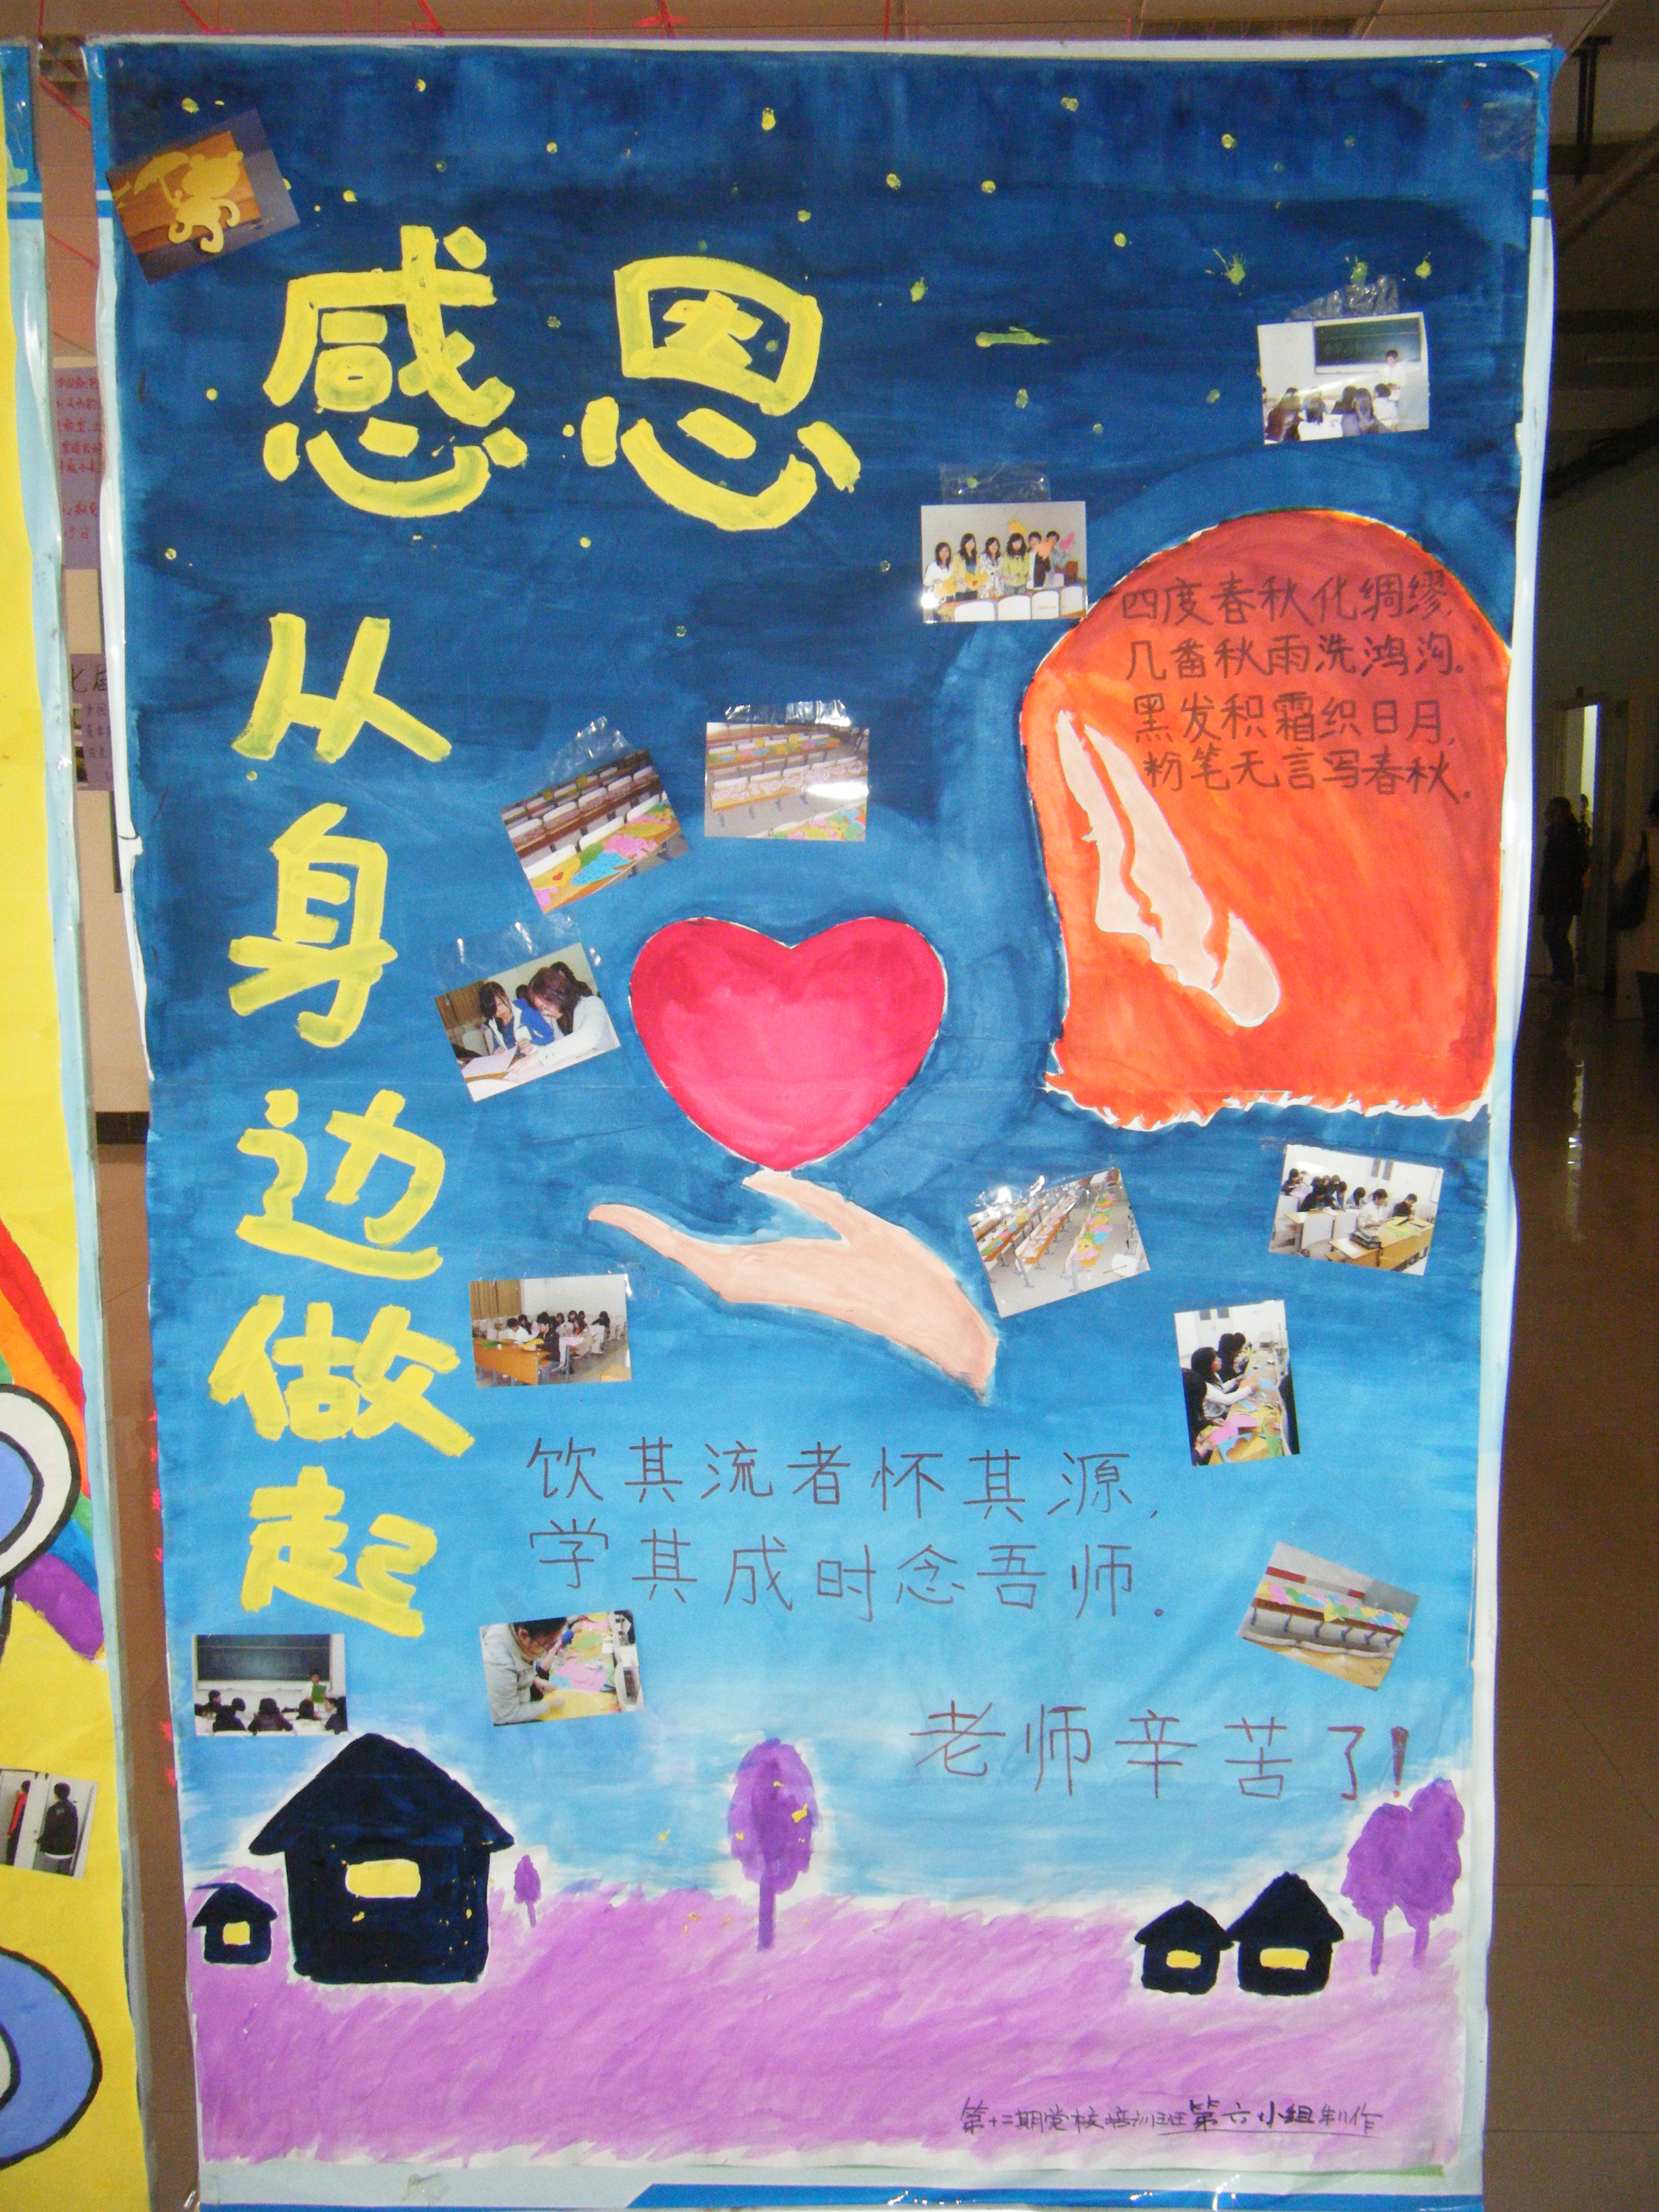 感恩
从身边做起
四度春秋化绸缪,
几番秋雨洗鸿沟.
黑发积霜织日月,
粉笔无言写春秋.
饮其流者怀其源,
学其成时念吾师.
老师辛苦了!
第十二期党校培训班第六小组制作